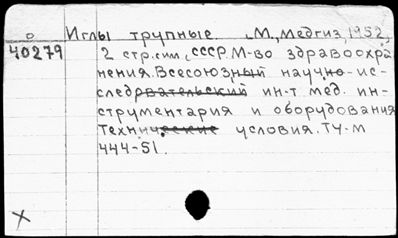 Иглы трупные. М., Медгиз, 1952,
40279 2 стр. сим, СССР. М-во здравоохра
нения. Всесоюзный научно-ис-
следовательский ин-т мед. ин-
струментария и оборудования
Технические условия. ТУ-М
444-51.
X